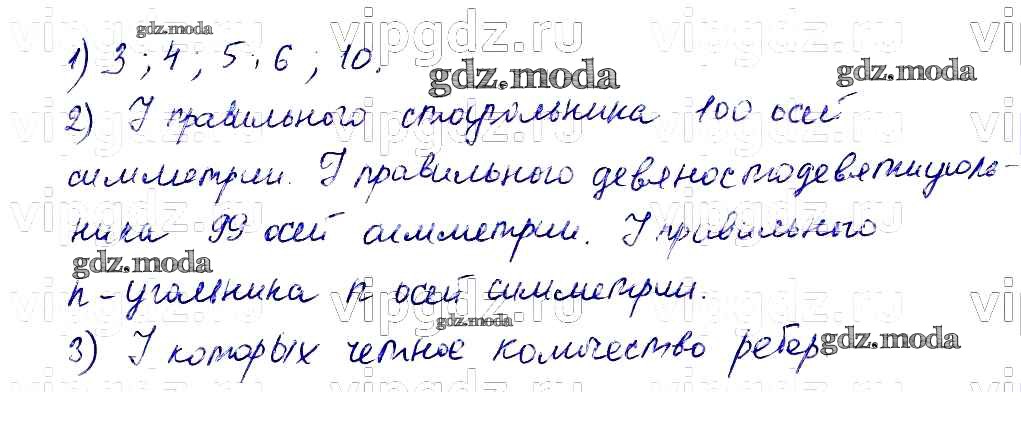 1) 3; 4; 5; 6; 10.
2) У правильного стоугольника 100 осей
симметрии. У правильного девяностодевятиуголь-
ника 99 осей симметрии. У правильного
n-угольника n осей симметрии.
3) У которых четное количество ребер
gdz.moda
gdz.moda
gdz.moda
gdz.moda
gdz.moda
gdz.moda
vipgdz.ru